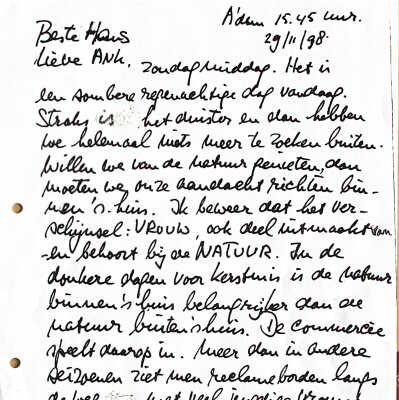 A'dam 15.45 uur.
29/11/98.
Beste Hans
Lieve Ank, zondagmiddag. Het is
een sombere regenachtige dag vandaag.
Straks is het duister en dan hebben
we helemaal niets meer te zoeken buiten.
Willen we van de natuur genieten, dan
moeten we onze aandacht richten bin-
nen's-huis. Ik beweer dat het ver-
schijnsel: VROUW, ook deel uitmaakt van
-en behoort bij de NATUUR. In de
donkere dagen voor kerstmis is de natuur
binnen's huis belangrijker dan de
natuur buitenshuis. De commercie
speelt daarop in. Meer dan in andere
seizoenen ziet men reclameborden langs
de met veel